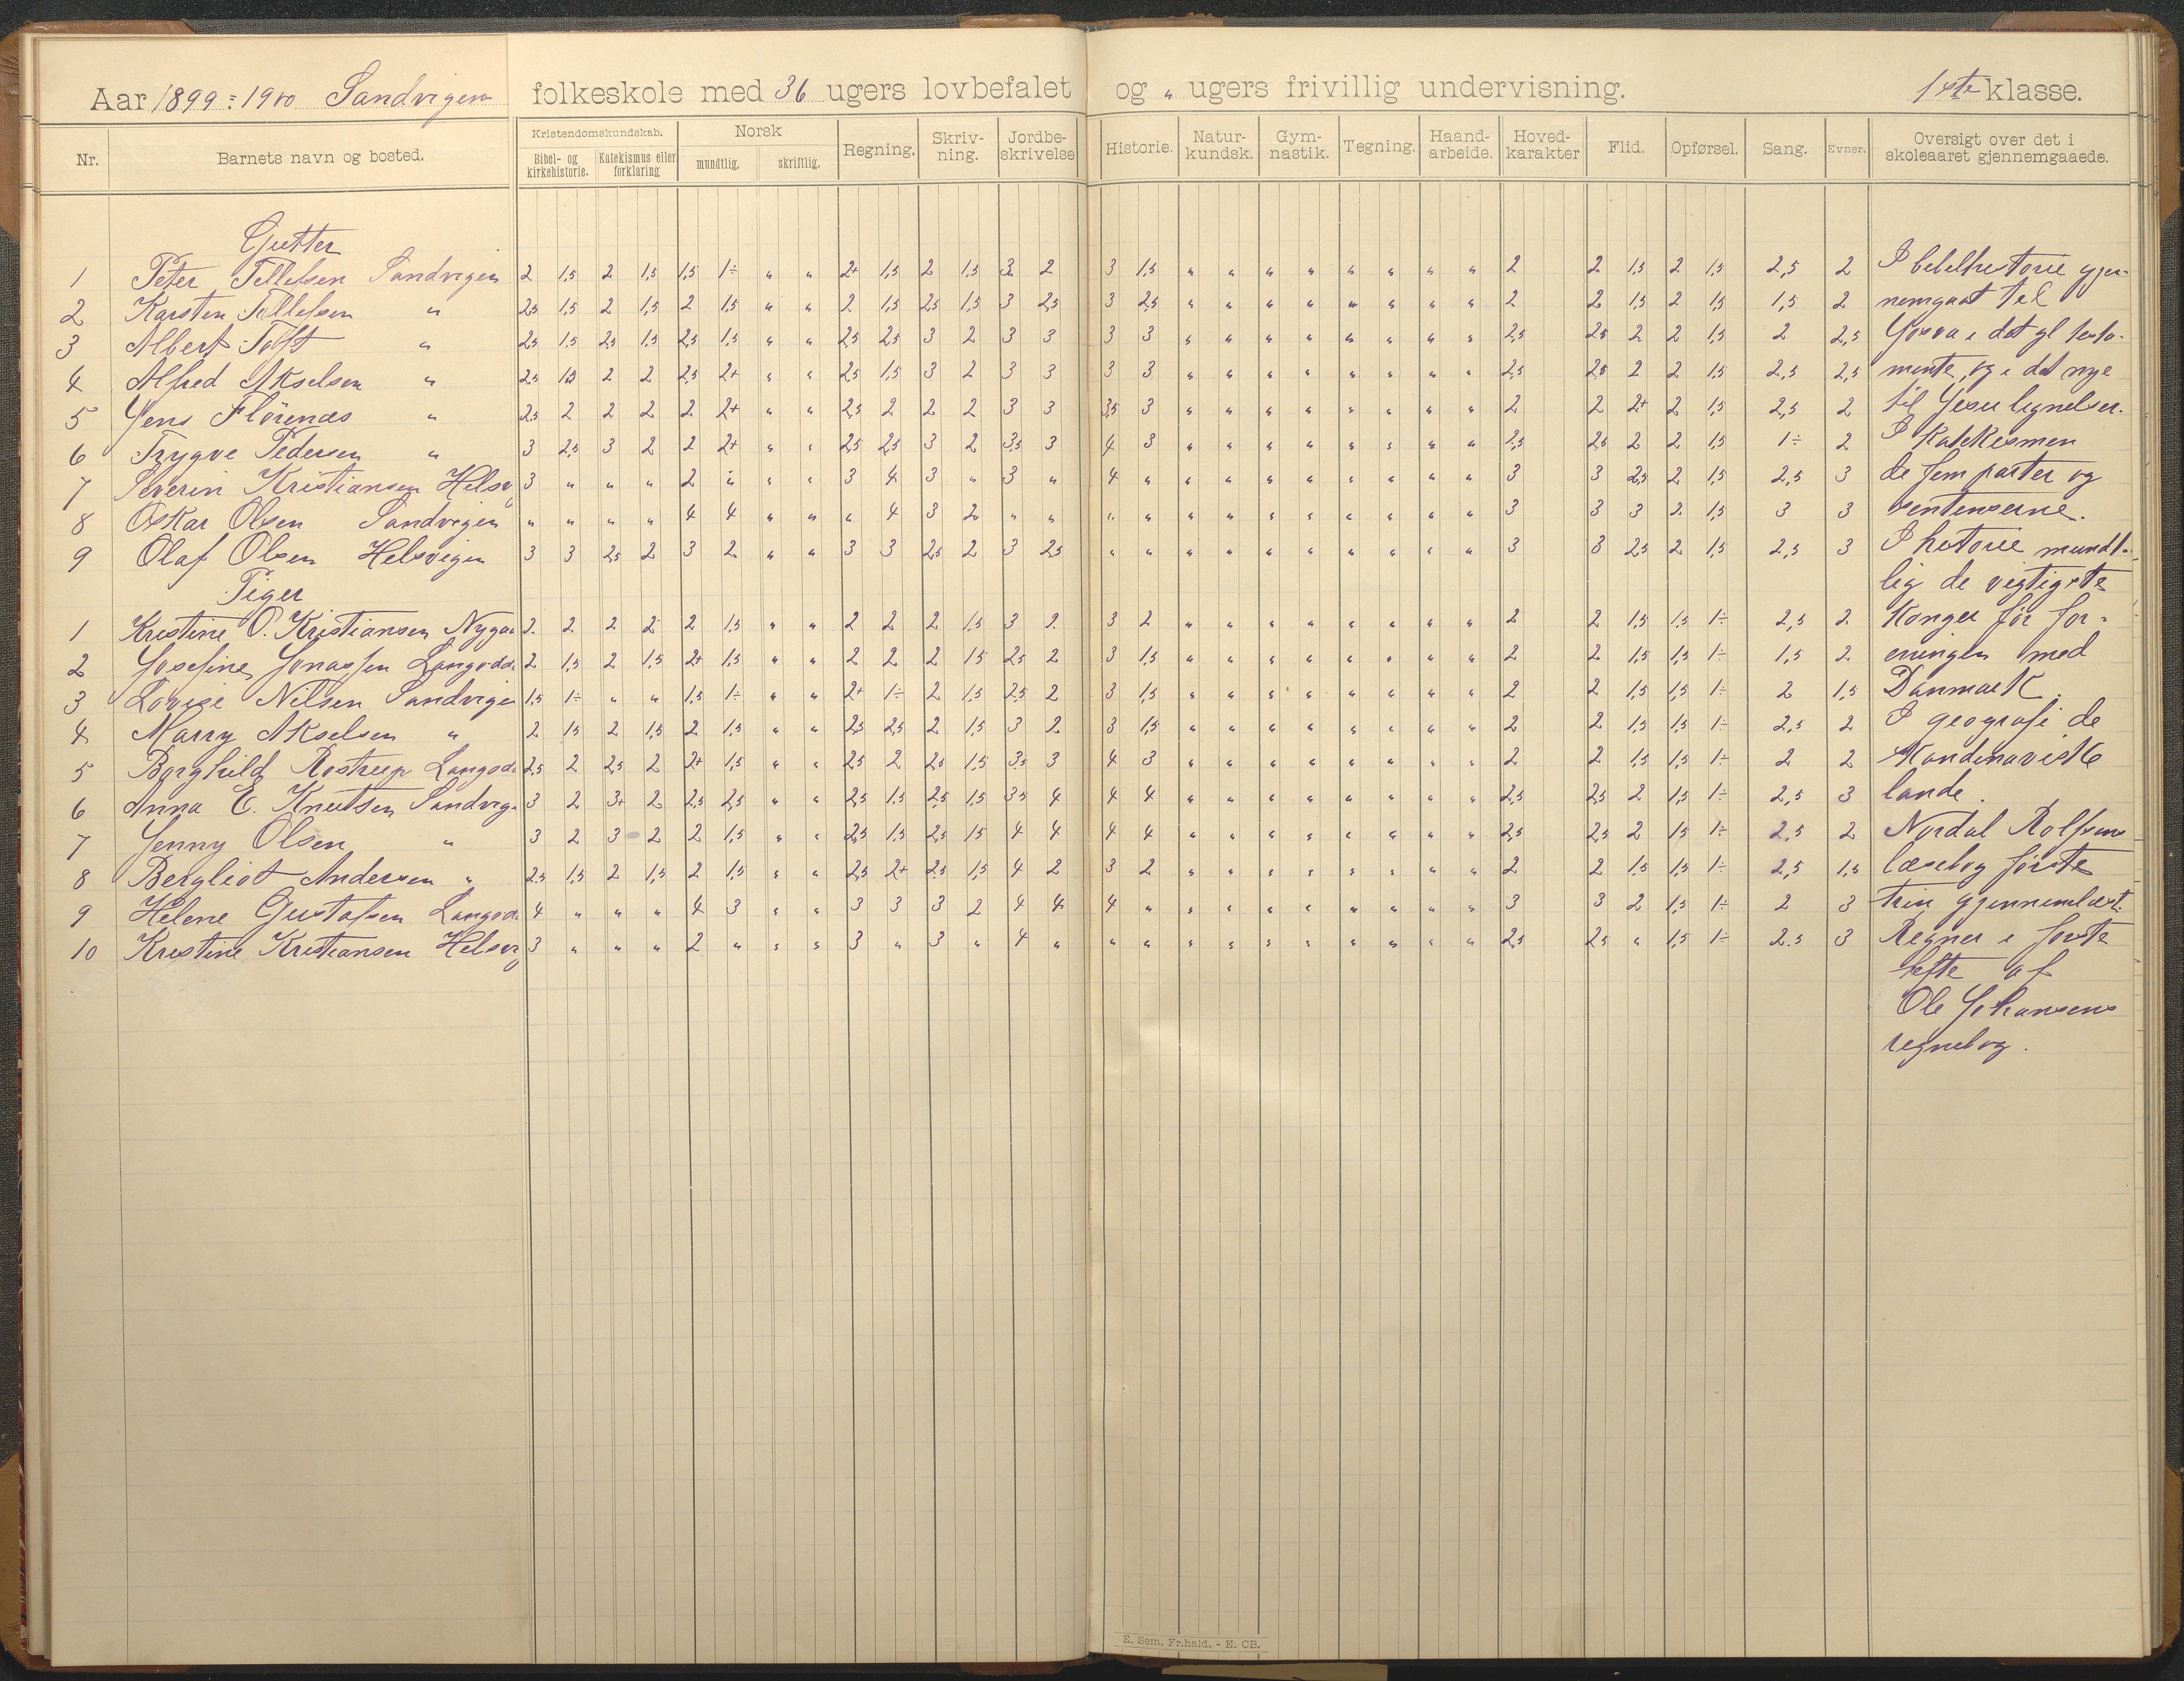 Aar 1899=1900 Sandvigen folkeskole med 36 ugers lovbefalet og " ugers frivillig undervisning. 1ste klasse.
Nr. Barnets navn og bosted. Kristendomskundskab. Bibel- og kirkehistorie. Katekismus eller forklaring Norsk mundtlig. skriftlig. Regning. Skriv-ning. Jordbe-skrivelse Historie. Natur-kundsk. Gym-nastik. Tegning. Haand-arbeide. Hoved-karakter Flid. Opførsel. Sang. Evner. Oversigt over det i skoleaaret gjennemgaaede.
Gutter
1 Peter Tellefsen Sandvigen 2 1,5 2 1,5 1,5 1÷ " " 2+ 1,5 2 1,5 3 2 3 1,5 " " " " " " " " 2 2 1,5 2 1,5 2,5 2
2 Karsten Tellefsen " 2,5 1,5 2 1,5 2 1,5 " " 2 1,5 2,5 1,5 3 2,5 3 2,5 " " " " " " " " 2 2 1,5 2 1,5 1,5 2
3 Albert Toft " 2,5 1,5 2,5 1,5 2,5 1,5 " " 2,5 2,5 3 2 3 3 3 3 " " " " " " " " 2,5 2,5 2 2 1,5 2 2,5
4 Alfred Akselsen " 2,5 1,5 2 2 2,5 2+ " " 2,5 1,5 3 2 3 3 3 3 " " " " " " " " 2,5 2,5 2 2 1,5 2,5 2,5
5 Jens Flörenæs " 2,5 2 2 2 2 2+ " " 2,5 2 2 2 3 3 3,5 3 " " " " " " " " 2 2 2+ 2 1,5 2,5 2
6 Trygve Pedersen " 3 2,5 3 2 2 2+ " " 2,5 2,5 3 2 3,5 3 4 3 " " " " " " " " 2,5 2,5 2 2 1,5 1÷ 2
7 Severin Kristiansen Helsv 3 " " " 2 " " " 3 4 3 " 3 " 4 " " " " " " " " " 3 3 2,5 2 1,5 2,5 3
8 Oskar Olsen Sandvigen " " " " 4 4 " " " 4 3 2 " " " " " " " " " " " " 3 3 3 2 1,5 3 3
9 Olaf Olsen Helsvigen 3 3 2,5 2 3 2 " " 3 3 2,5 2 3 2,5 " " " " " " " " " " 3 3 2,5 2 1,5 2,5 3
Piger
1 Kristine O. Kristiansen Nygaa 2 2 2 2 2 1,5 " " 2 2 2 1,5 3 2 3 2 " " " " " " " " 2 2 1,5 1,5 1÷ 2,5 2
2 Josefine Jonassen Langodde 2 1,5 2 1,5 2+ 1,5 " " 2 2 2 1,5 2,5 2 3 1,5 " " " " " " " " 2 2 1,5 1,5 1÷ 1,5 2
3 Lovise Nilsen Sandvigen 1,5 1÷ " " 1,5 1÷ " " 2+ 1÷ 2 1,5 2,5 2 3 1,5 " " " " " " " " 2 2 1,5 1,5 1÷ 2 1,5
4 Marry Akselsen " 2 1,5 2 1,5 2 1,5 " " 2,5 2,5 2 1,5 3 2 3 1,5 " " " " " " " " 2 2 1,5 1,5 1÷ 2,5 2
5 Borghild Rostrup Langod 2,5 2 2,5 2 2+ 1,5 " " 2,5 2 2,5 1,5 3,5 3 4 3 " " " " " " " " 2 2 1,5 1,5 1÷ 2 2
6 Anna E. Knutsen Sandvig 3 2 3+ 2 2,5 2,5 " " 2,5 1,5 2,5 1,5 3,5 4 4 4 " " " " " " " " 2,5 2,5 2 1,5 1÷ 2,5 3
7 Jenny Olsen " 3 2 3 2 2 1,5 " " 2,5 1,5 2,5 1,5 4 4 4 4 " " " " " " " " 2,5 2,5 2 1,5 1÷ 2,5 2
8 Bergliot Andersen " 2,5 1,5 2 1,5 2 1,5 " " 2,5 2+ 2,5 1,5 4 2 3 2 " " " " " " " " 2 2 1,5 1,5 1÷ 2,5 1,5
9 Helene Gustafsen Langod 4 " " " 4 3 " " 3 3 3 2 4 4 4 " " " " " " " " " 3 3 2 1,5 1÷ 2 3
10 Kristine Kristiansen Helsvig 3 " " " 2 " " " 3 " 3 " 4 " " " " " " " " " " " 2,5 2,5 " 1,5 1÷ 2.5 3
I bibelhistorie gjen-
nemgaat til
Josva i det gl testa-
mente, og i det nye
til Jesu lignelser.
I Katekismen
de fem parter og
sentenserne.
I historie mundt-
lig de vigtigste
Konger før for-
eningen med
Danmark.
I geografi de
skandinaviske
lande.
Nordal Rolfsens
læsebog første
trin gjennemlæst.
Regner i første
hefte af
Ole Johansens
regnebog.
E. Sem, Fr.hald. - E. CB.